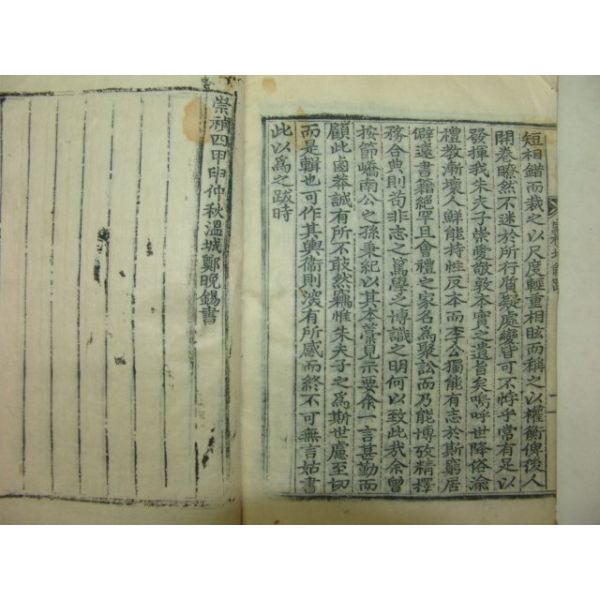 短相錯而裁之以尺度輕重相眩而稱之以權衡俾後人
開卷瞭然不迷於所行質疑處變皆可不悖乎當有足以
發揮我朱夫子崇愛敬敦本實之遺旨矣嗚呼世降俗渝
禮教漸壞人鮮能持性反本而李公獨能有志於斯窮居
僻遠書籍絕罕且會禮之家名爲聚訟而乃能博攷精擇
務合典則苟非志之篤學之博識之明何以致此哉余曾
按節嶠南公之孫秉紀以其本蒙見示要余一言甚勤而
顧此鹵莽誠有所不敢然竊惟朱夫子之爲斯世慮至切
而是輯也可作其輿衛則深有所感而終不可無言姑書
此以爲之跋時
崇禎四甲申仲秋溫城鄭晩錫書